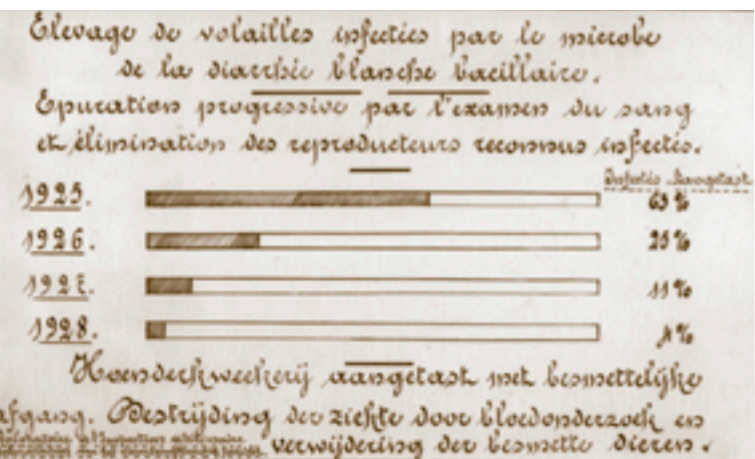 Elevage de volailles infectées par le microbe
de la diarrhée blanche bacillaire.
Epuration progressive par l'examen du sang
et élimination des reproducteurs reconnus infectés.
Infectés Aangetast
1925. 63 %
1926. 25 %
1927. 11 %
1928. 4 %
Hoenderkweekerij aangetast met besmettelijke
afgang. Bestrijding der ziekte door bloedonderzoek en
verwijdering der besmette dieren.